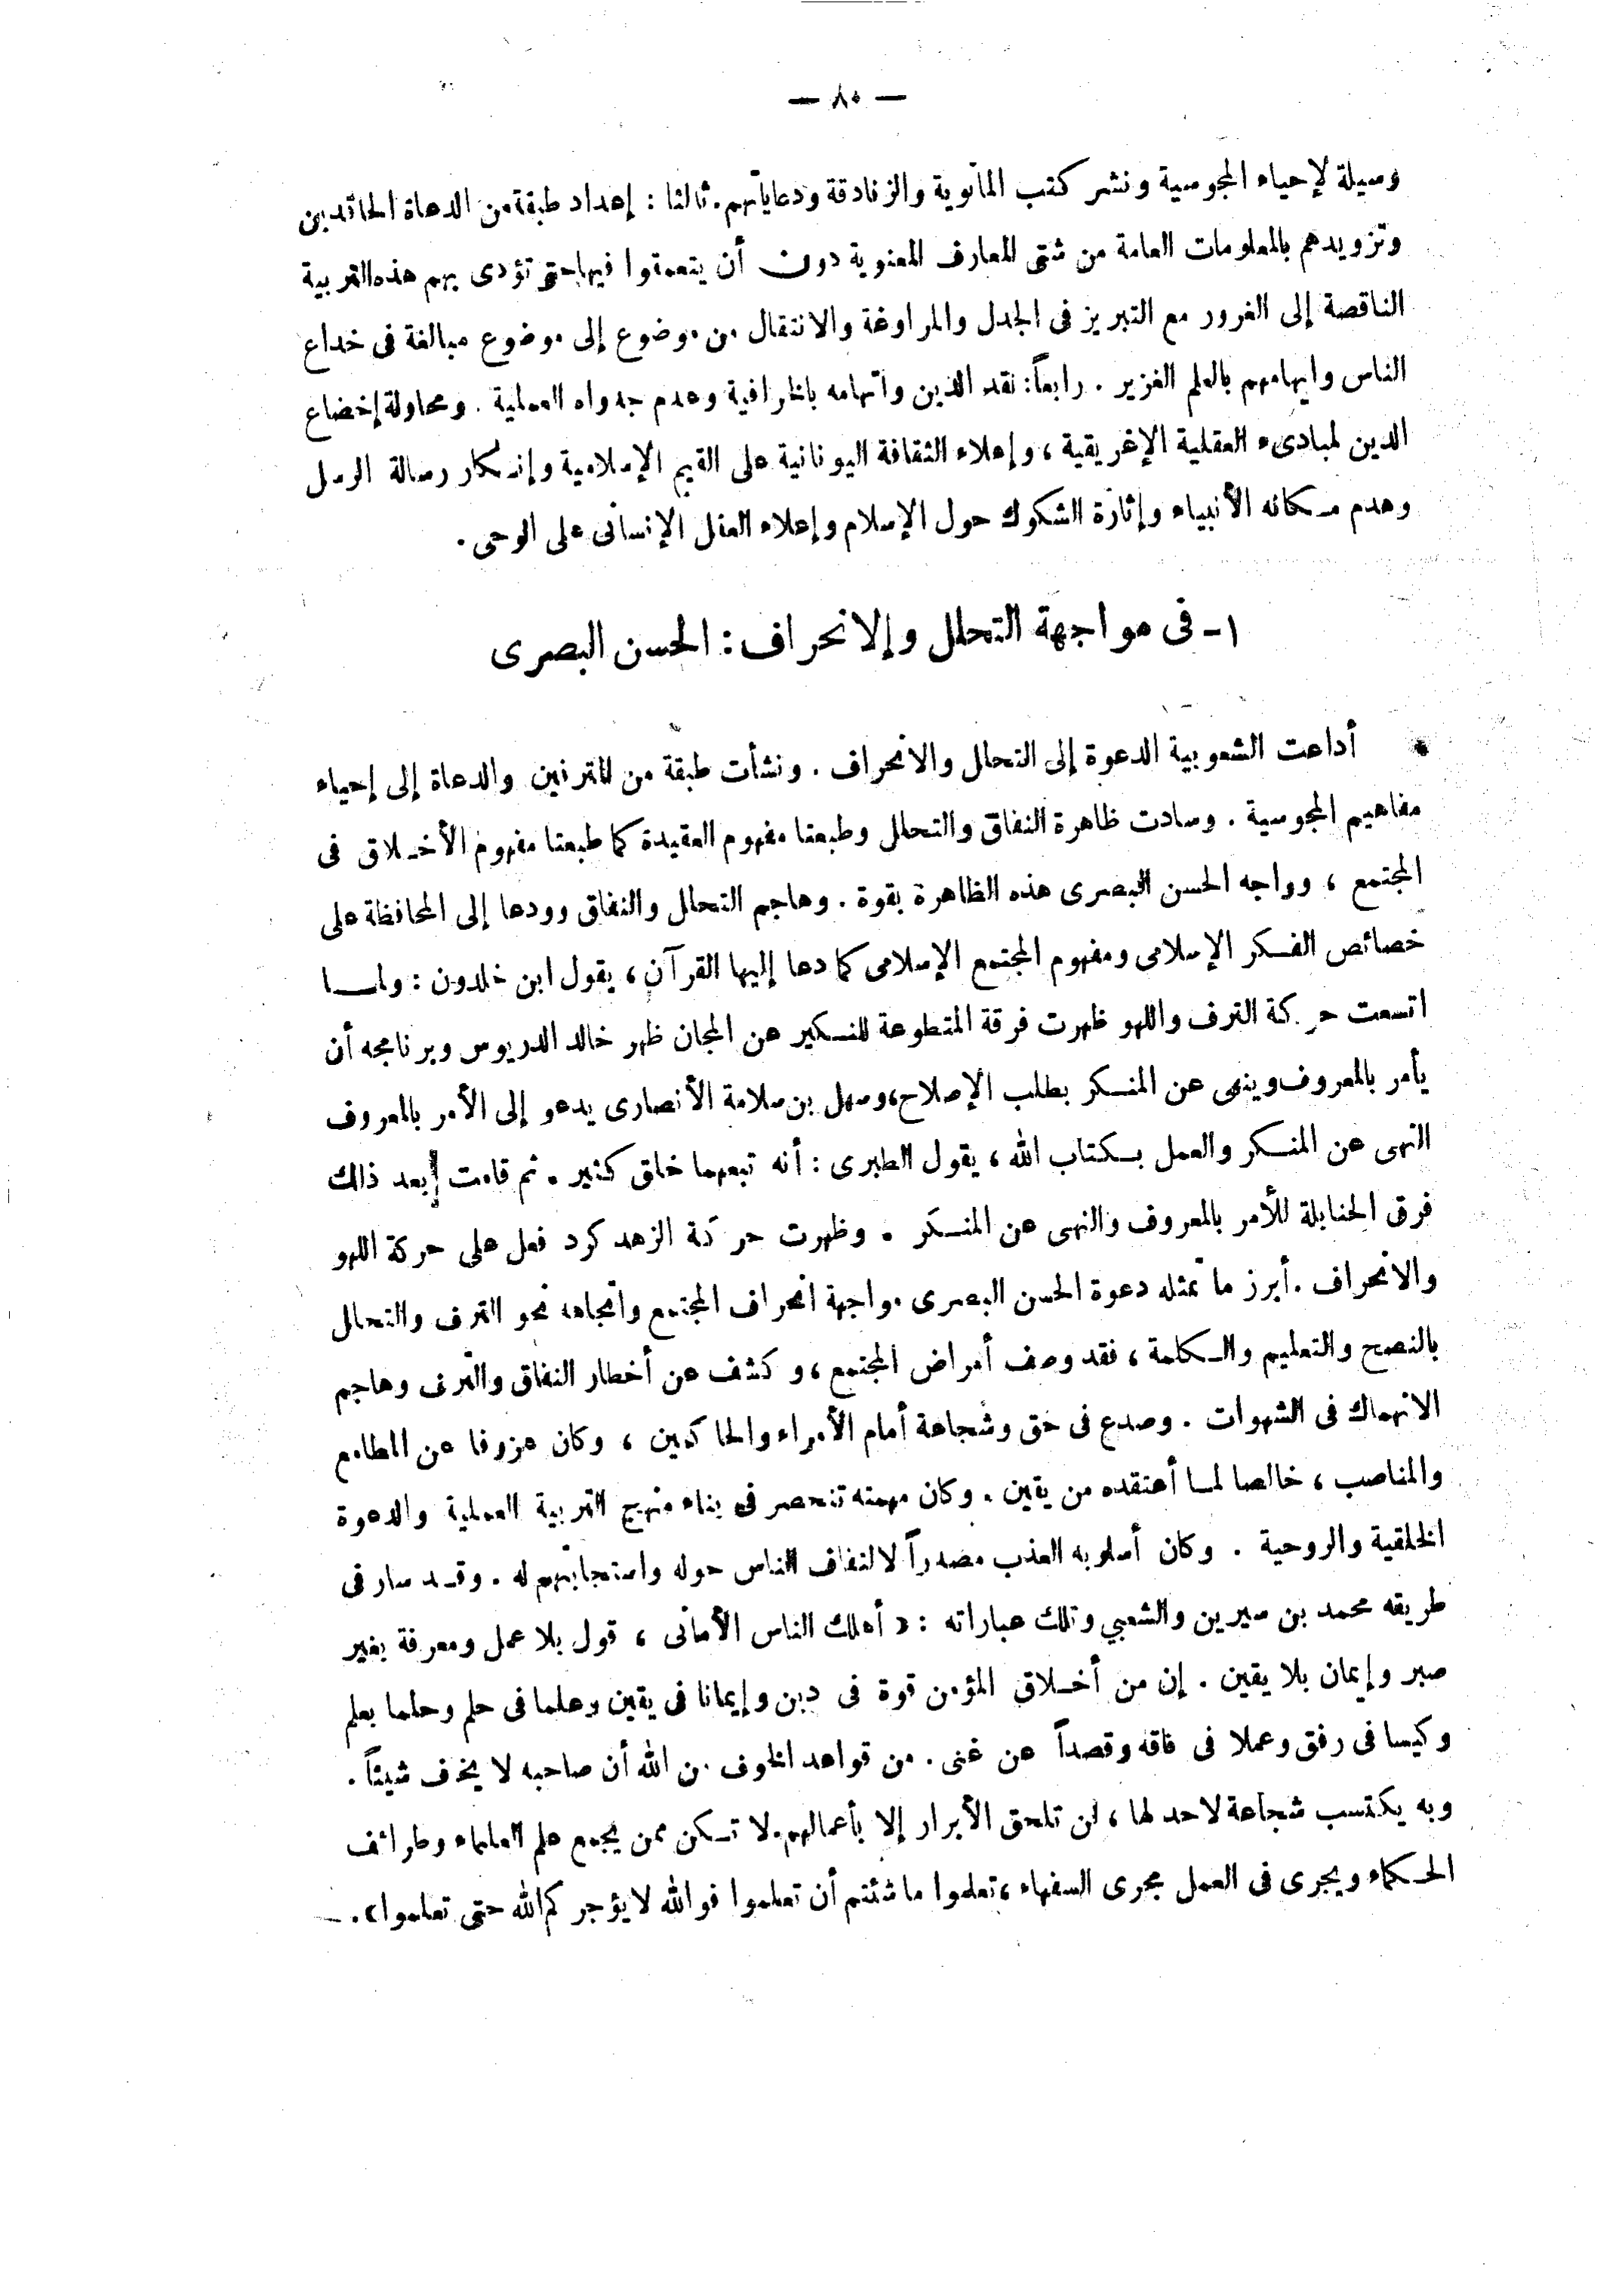 — ٨٠ —
وسيلة لإحياء المجوسية ونشر كتب المانوية والزنادقة ودعاياتهم. ثالثا : إعداد طبقة من الدعاة الحاقدين
وتزويدهم بالمعلومات العامة من شتى المعارف المعنوية دون أن يتعمقوا فيها حتى تؤدى بهم هذه التربية
الناقصة إلى الغرور مع التبريز فى الجدل والمراوغة والانتقال من موضوع إلى موضوع مبالغة فى خداع
الناس وإيهامهم بالعلم الغزير . رابعاً : نقد الدين واتهامه بالخرافية وعدم جدواه العملية . ومحاولة إخضاع
الدين لمبادىء العقلية الإغريقية ، وإعلاء الثقافة اليونانية على القيم الإسلامية وإنكار رسالة الرسل
وهدم مكانه الأنبياء وإثارة الشكوك حول الإسلام وإعلاء العقل الإنسانى على الوحى .
١ - فى مواجهة التحلل وإلانحراف : الحسن البصرى
* أداعت الشعوبية الدعوة إلى التحلل والانحراف . ونشأت طبقة من المترفين والدعاة إلى إحياء
مفاهيم المجوسية . وسادت ظاهرة النفاق والتحلل وطبعتا مفهوم العقيدة كما طبعتا مفهوم الأخلاق فى
المجتمع ، وواجه الحسن البصرى هذه الظاهرة بقوة . وهاجم التحلل والنفاق وودعا إلى المحافظة على
خصائص الفكر الإسلامى ومفهوم المجتمع الإسلامى كما دعا إليها القرآن ، يقول ابن خلدون : ولما
اتسعت حركة الترف واللهو ظهرت فرقة المتطوعة للنكير عن المجان ظهر خالد الدريوس وبرنامجه أن
يأمر بالمعروف وينهى عن المنكر بطلب الإصلاح ، وسهل بن سلامة الأنصارى يدعو إلى الأمر بالمعروف
النهى عن المنكر والعمل بكتاب الله ، يقول الطبرى : أنه تبعهما خلق كثير . ثم قامت بعد ذلك
فرق الحنابلة للأمر بالمعروف والنهى عن المنكر . وظهرت حركة الزهد كرد فعل على حركة اللهو
والانحراف . أبرز ما تمثله دعوة الحسن البصرى مواجهة انحراف المجتمع واتجاهه نحو الترف والتحلل
بالنصح والتعليم والكلمة ، فقد وصف أمراض المجتمع ، وكشف عن أخطار النفاق والترف وهاجم
الانهماك فى الشهوات . وصدع فى حق وشجاعة أمام الأمراء والحاكمين ، وكان عزوفا عن المطامع
والمناصب ، خالصا لما أعتقده من يقين . وكان مهمته تنحصر فى بناء منهج التربية العملية والدعوة
الخلقية والروحية . وكان أسلوبه العذب مصدراً لالتفاف الناس حوله واستجابتهم له . وقد سار فى
طريقه محمد بن سيرين والشعبي وتلك عباراته : « أهلك الناس الأمانى ، قول بلا عمل ومعرفة بغير
صبر وإيمان بلا يقين . إن من أخلاق المؤمن قوة فى دين وإيمانا فى يقين وعلما فى حلم وحلما بعلم
وكيسا فى رفق وعملا فى فاقه وقصداً عن غنى . من قواعد الخوف من الله أن صاحبه لا يخف شيئاً .
وبه يكتسب شجاعة لاحد لها ، لن تلحق الأبرار إلا بأعمالهم. لا تكن ممن يجمع علم العلماء وطرائف
الحكماء ويجرى فى العمل مجرى السفهاء ، تعلموا ما شئتم أن تعلموا فوالله لا يؤجركم الله حتى تعلموا » .